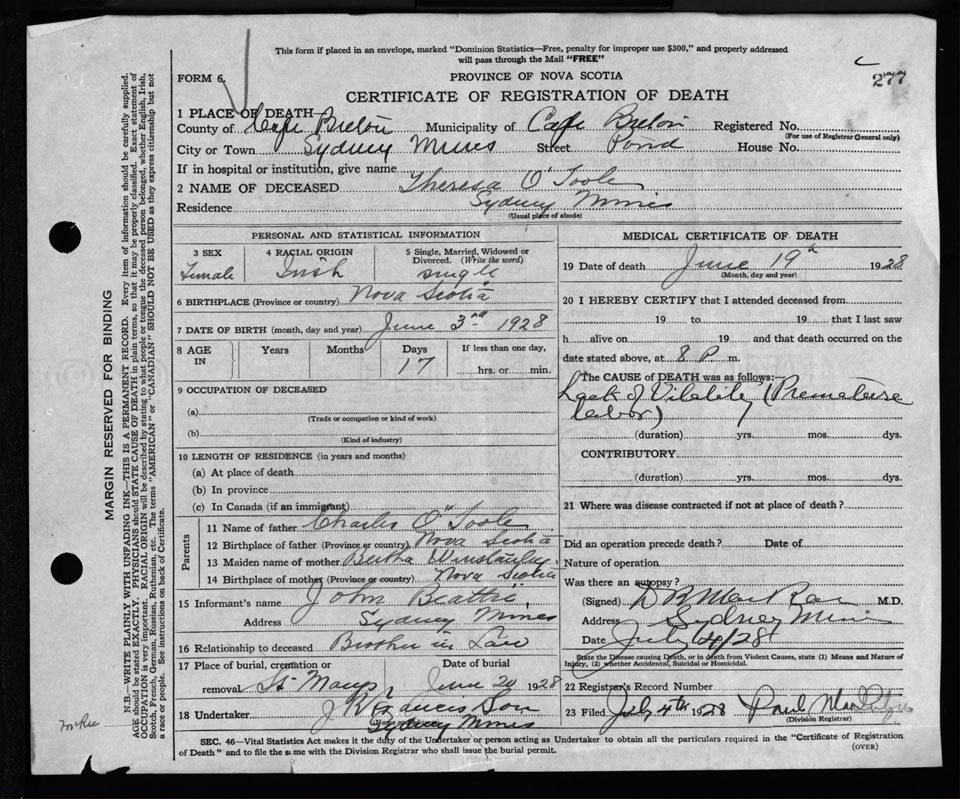 This form if placed in an envelope, marked "Dominion Statistics—Free, penalty for improper use $300," and properly addressed
will pass through the Mail "FREE"
FORM 6.
PROVINCE OF NOVA SCOTIA
277
CERTIFICATE OF REGISTRATION OF DEATH
1 PLACE OF DEATH
County of Cape Breton Municipality of Cape Breton Registered No.
(For use of Registrar General only)
City or Town Sydney Mines Street Pond House No.
If in hospital or institution, give name
2 NAME OF DECEASED Theresa O'Toole
Residence Sydney Mines
(Usual place of abode)
PERSONAL AND STATISTICAL INFORMATION
3 SEX 4 RACIAL ORIGIN 5 Single, Married, Widowed or
Divorced. (Write the word)
Female Irish single
6 BIRTHPLACE (Province or country) Nova Scotia
7 DATE OF BIRTH (month, day and year) June 3rd 1928
8 AGE IN Years Months Days If less than one day,
17 hrs. or min.
9 OCCUPATION OF DECEASED
(a)
(Trade or occupation or kind of work)
(b)
(Kind of industry)
10 LENGTH OF RESIDENCE (in years and months)
(a) At place of death
(b) In province
(c) In Canada (if an immigrant)
Parents
11 Name of father Charles O'Toole
12 Birthplace of father (Province or country) Nova Scotia
13 Maiden name of mother Bertha
14 Birthplace of mother (Province or country) Nova Scotia
15 Informant's name John Beattie
Address Sydney Mines
16 Relationship to deceased Brother in Law
17 Place of burial, cremation or Date of burial
removal St Marys June 20 1928
18 Undertaker J R Francis Son
Sydney Mines
MEDICAL CERTIFICATE OF DEATH
19 Date of death June 19th 1928
(Month, day and year)
20 I HEREBY CERTIFY that I attended deceased from
19 to 19 that I last saw
h alive on 19 and that death occurred on the
date stated above, at 8 P m.
The CAUSE of DEATH was as follows:—
Lack of Vitality (Premature
labor)
(duration) yrs. mos. dys.
CONTRIBUTORY
(duration) yrs. mos. dys.
21 Where was disease contracted if not at place of death?
Did an operation precede death? Date of
Nature of operation
Was there an autopsy?
(Signed) M.D.
Address Sydney Mines
Date July 4/28
State the Disease causing Death, or in death from Violent Causes, state (1) Means and Nature of
Injury, (2) whether Accidental, Suicidal or Homicidal.
22 Registrar's Record Number
23 Filed July 4th 1928 Paul
(Division Registrar)
SEC. 46—Vital Statistics Act makes it the duty of the Undertaker or person acting as Undertaker to obtain all the particulars required in the "Certificate of Registration
of Death" and to file the same with the Division Registrar who shall issue the burial permit.
(OVER)
MARGIN RESERVED FOR BINDING
N.B.—WRITE PLAINLY WITH UNFADING INK—THIS IS A PERMANENT RECORD. Every item of information should be carefully supplied.
AGE should be stated EXACTLY. PHYSICIANS should STATE CAUSE OF DEATH in plain terms, so that it may be properly classified. Exact statement of
OCCUPATION is very important. RACIAL ORIGIN will be described by stating to what people or tongue the deceased person belonged, whether English, Irish,
Scotch, French, German, Russian, Ruthenian, etc. The terms "AMERICAN" or "CANADIAN" SHOULD NOT BE USED as they express citizenship but not
a race or people. See instructions on back of Certificate.